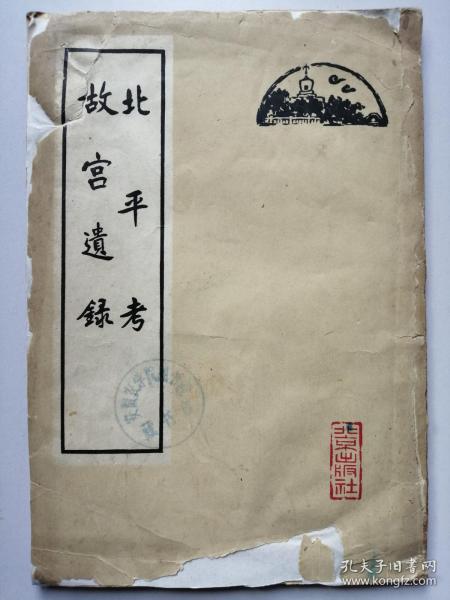 北平考
故宫遺録
北京出版社
孔夫子旧书网
www.kongfz.com